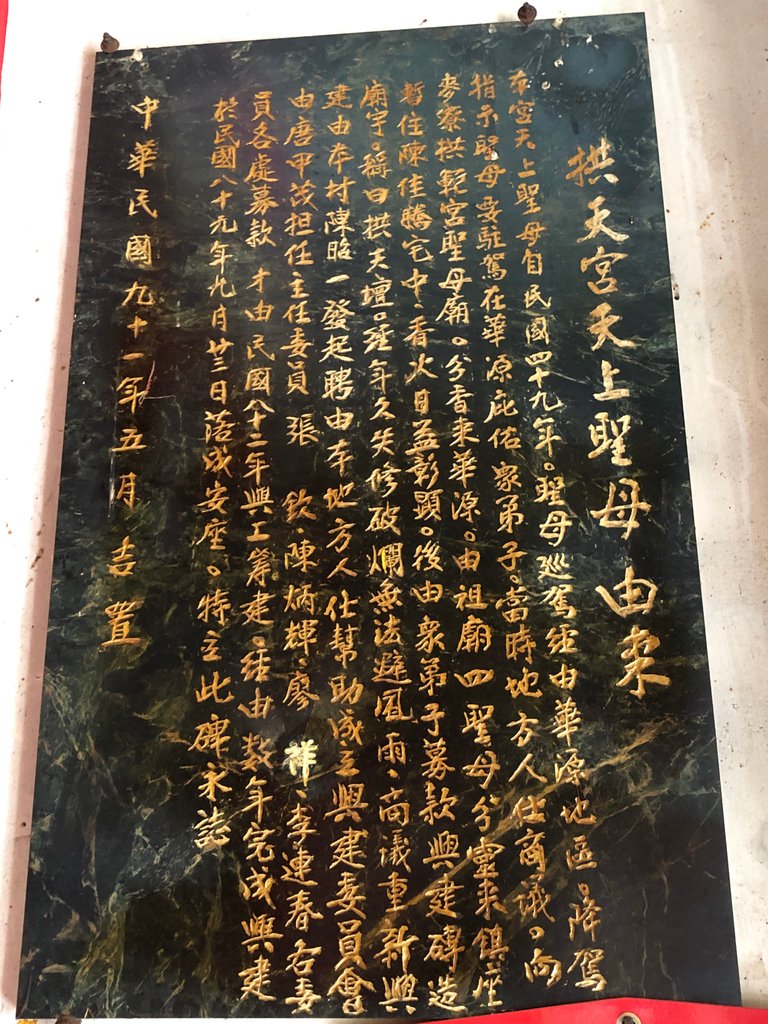 拱天宮天上聖母由来
本宮天上聖母自民國四十九年。聖母巡駕經由華源地區。降駕
指示聖母要駐駕在華源庇佑眾弟子。當時地方人仕商議。向
麥寮拱範宮聖母廟。分香来華源。由祖廟四聖母分靈来鎮座
暫住陳佳騰宅中、香火日益彰顯。後由眾弟子募款興建磚造
廟宇。稱曰拱天壇。經年久失修破爛無法避風雨、商議重新興
建由本村陳昭一發起聘由本地方人仕幫助成立興建委員會
由唐甲茂担任主任委員 張 欽、陳炳輝、廖 祥、李連春各委
員各處募款 才由民國八十二年興工籌建。經由数年完成興建
於民國八十元年九月廿三日落成安座。特立此碑永誌
中華民國九十一年五月吉置